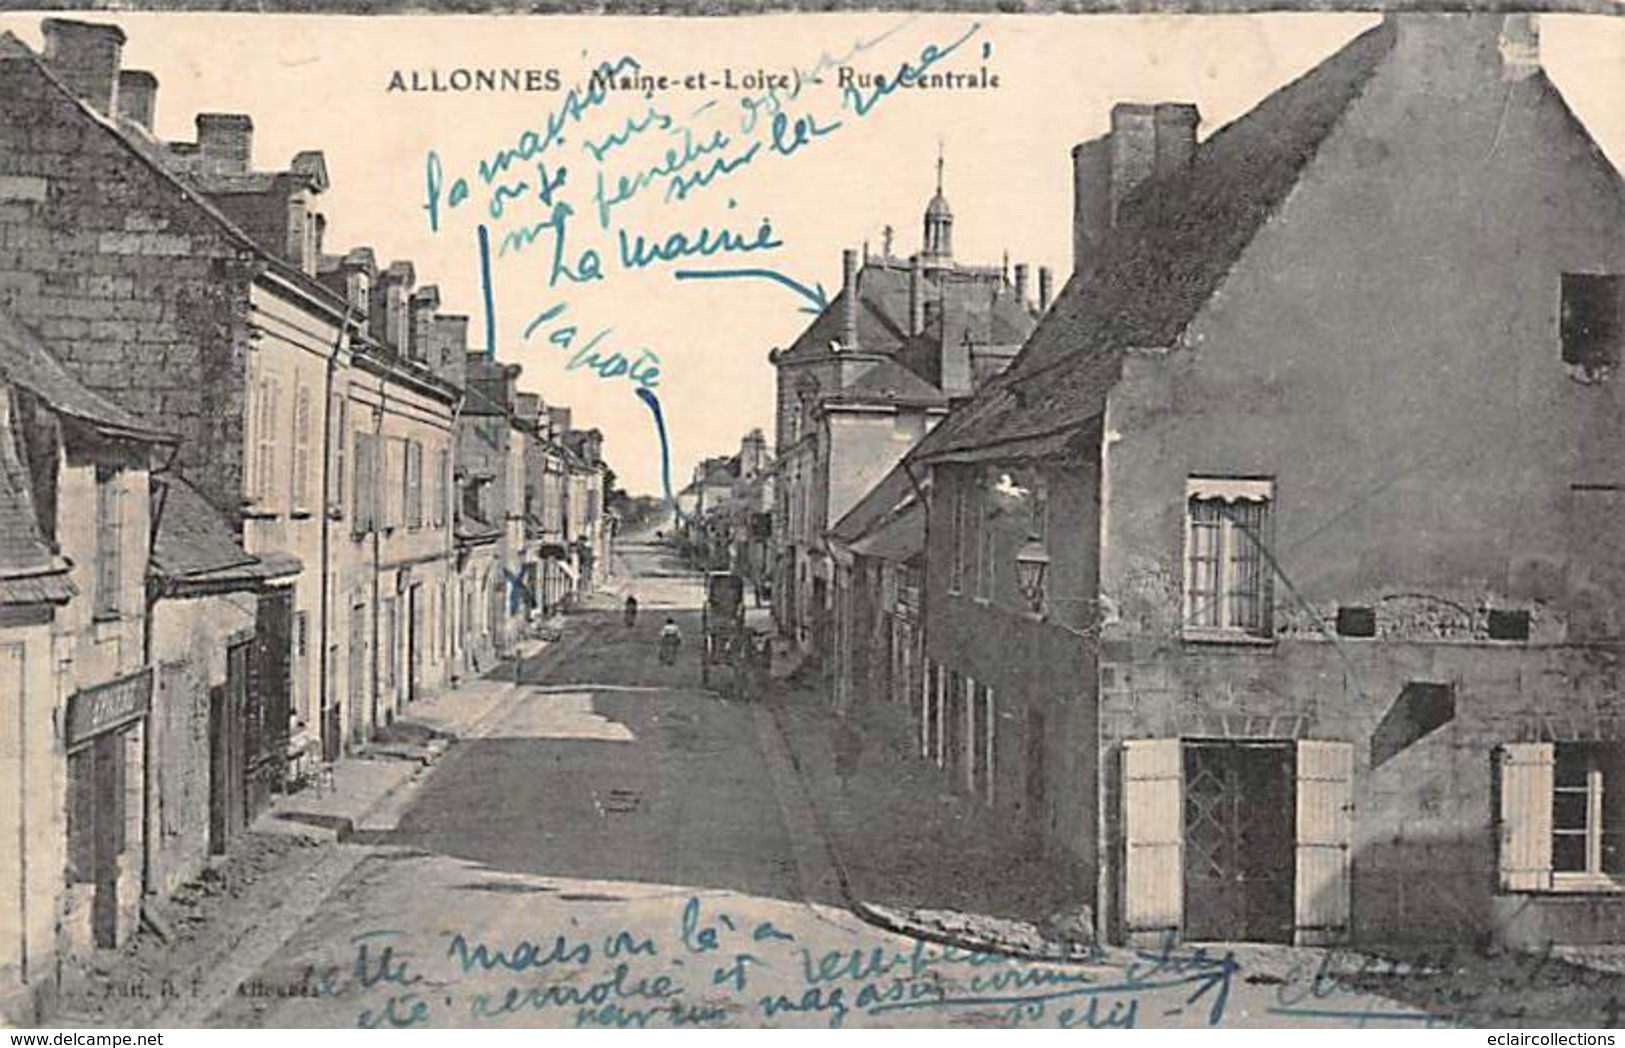 ALLONNES (Maine-et-Loire) - Rue Centrale
la maison
ou je suis -
ma fenetre donne
sur la rue
La Mairie
la Poste
Cette maison là a
été demolie et remplacée
par un magasin comme chez
Edit, Allonnes
eclaircollections